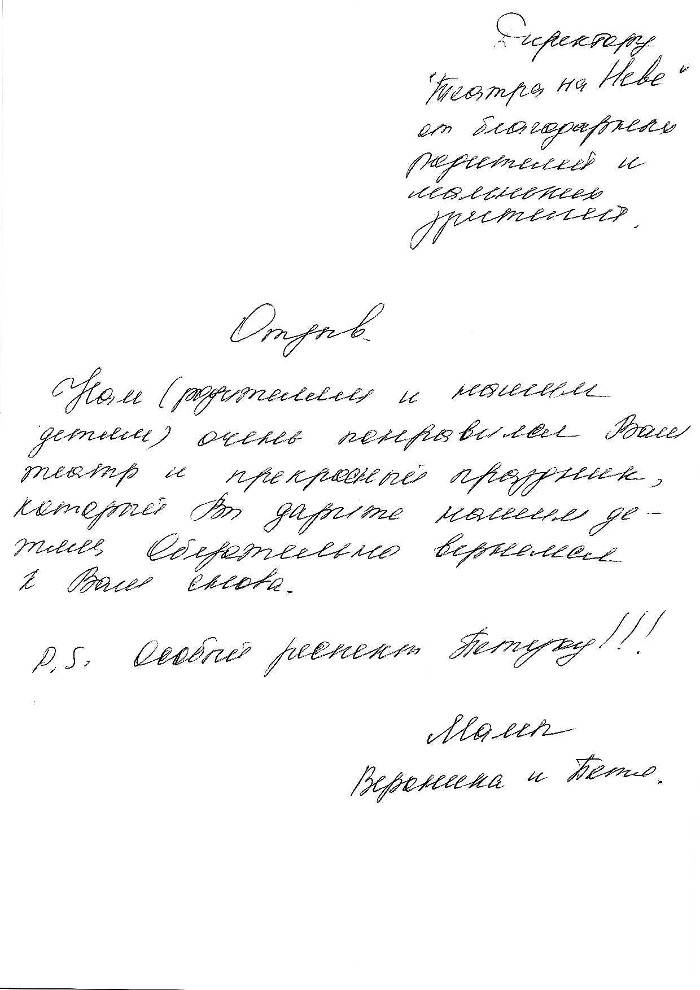 Директору
"Театра на Неве"
от благодарных
родителей и
маленьких
зрителей.
Отзыв.
Нам (родителям и нашим
детям) очень понравился Ваш
театр и прекрасный праздник,
который Вы дарите нашим де-
тям. Обязательно вернемся
к Вам снова.
P.S. Особый респект Петуху!!!
Мамы
Вероника и Петя.